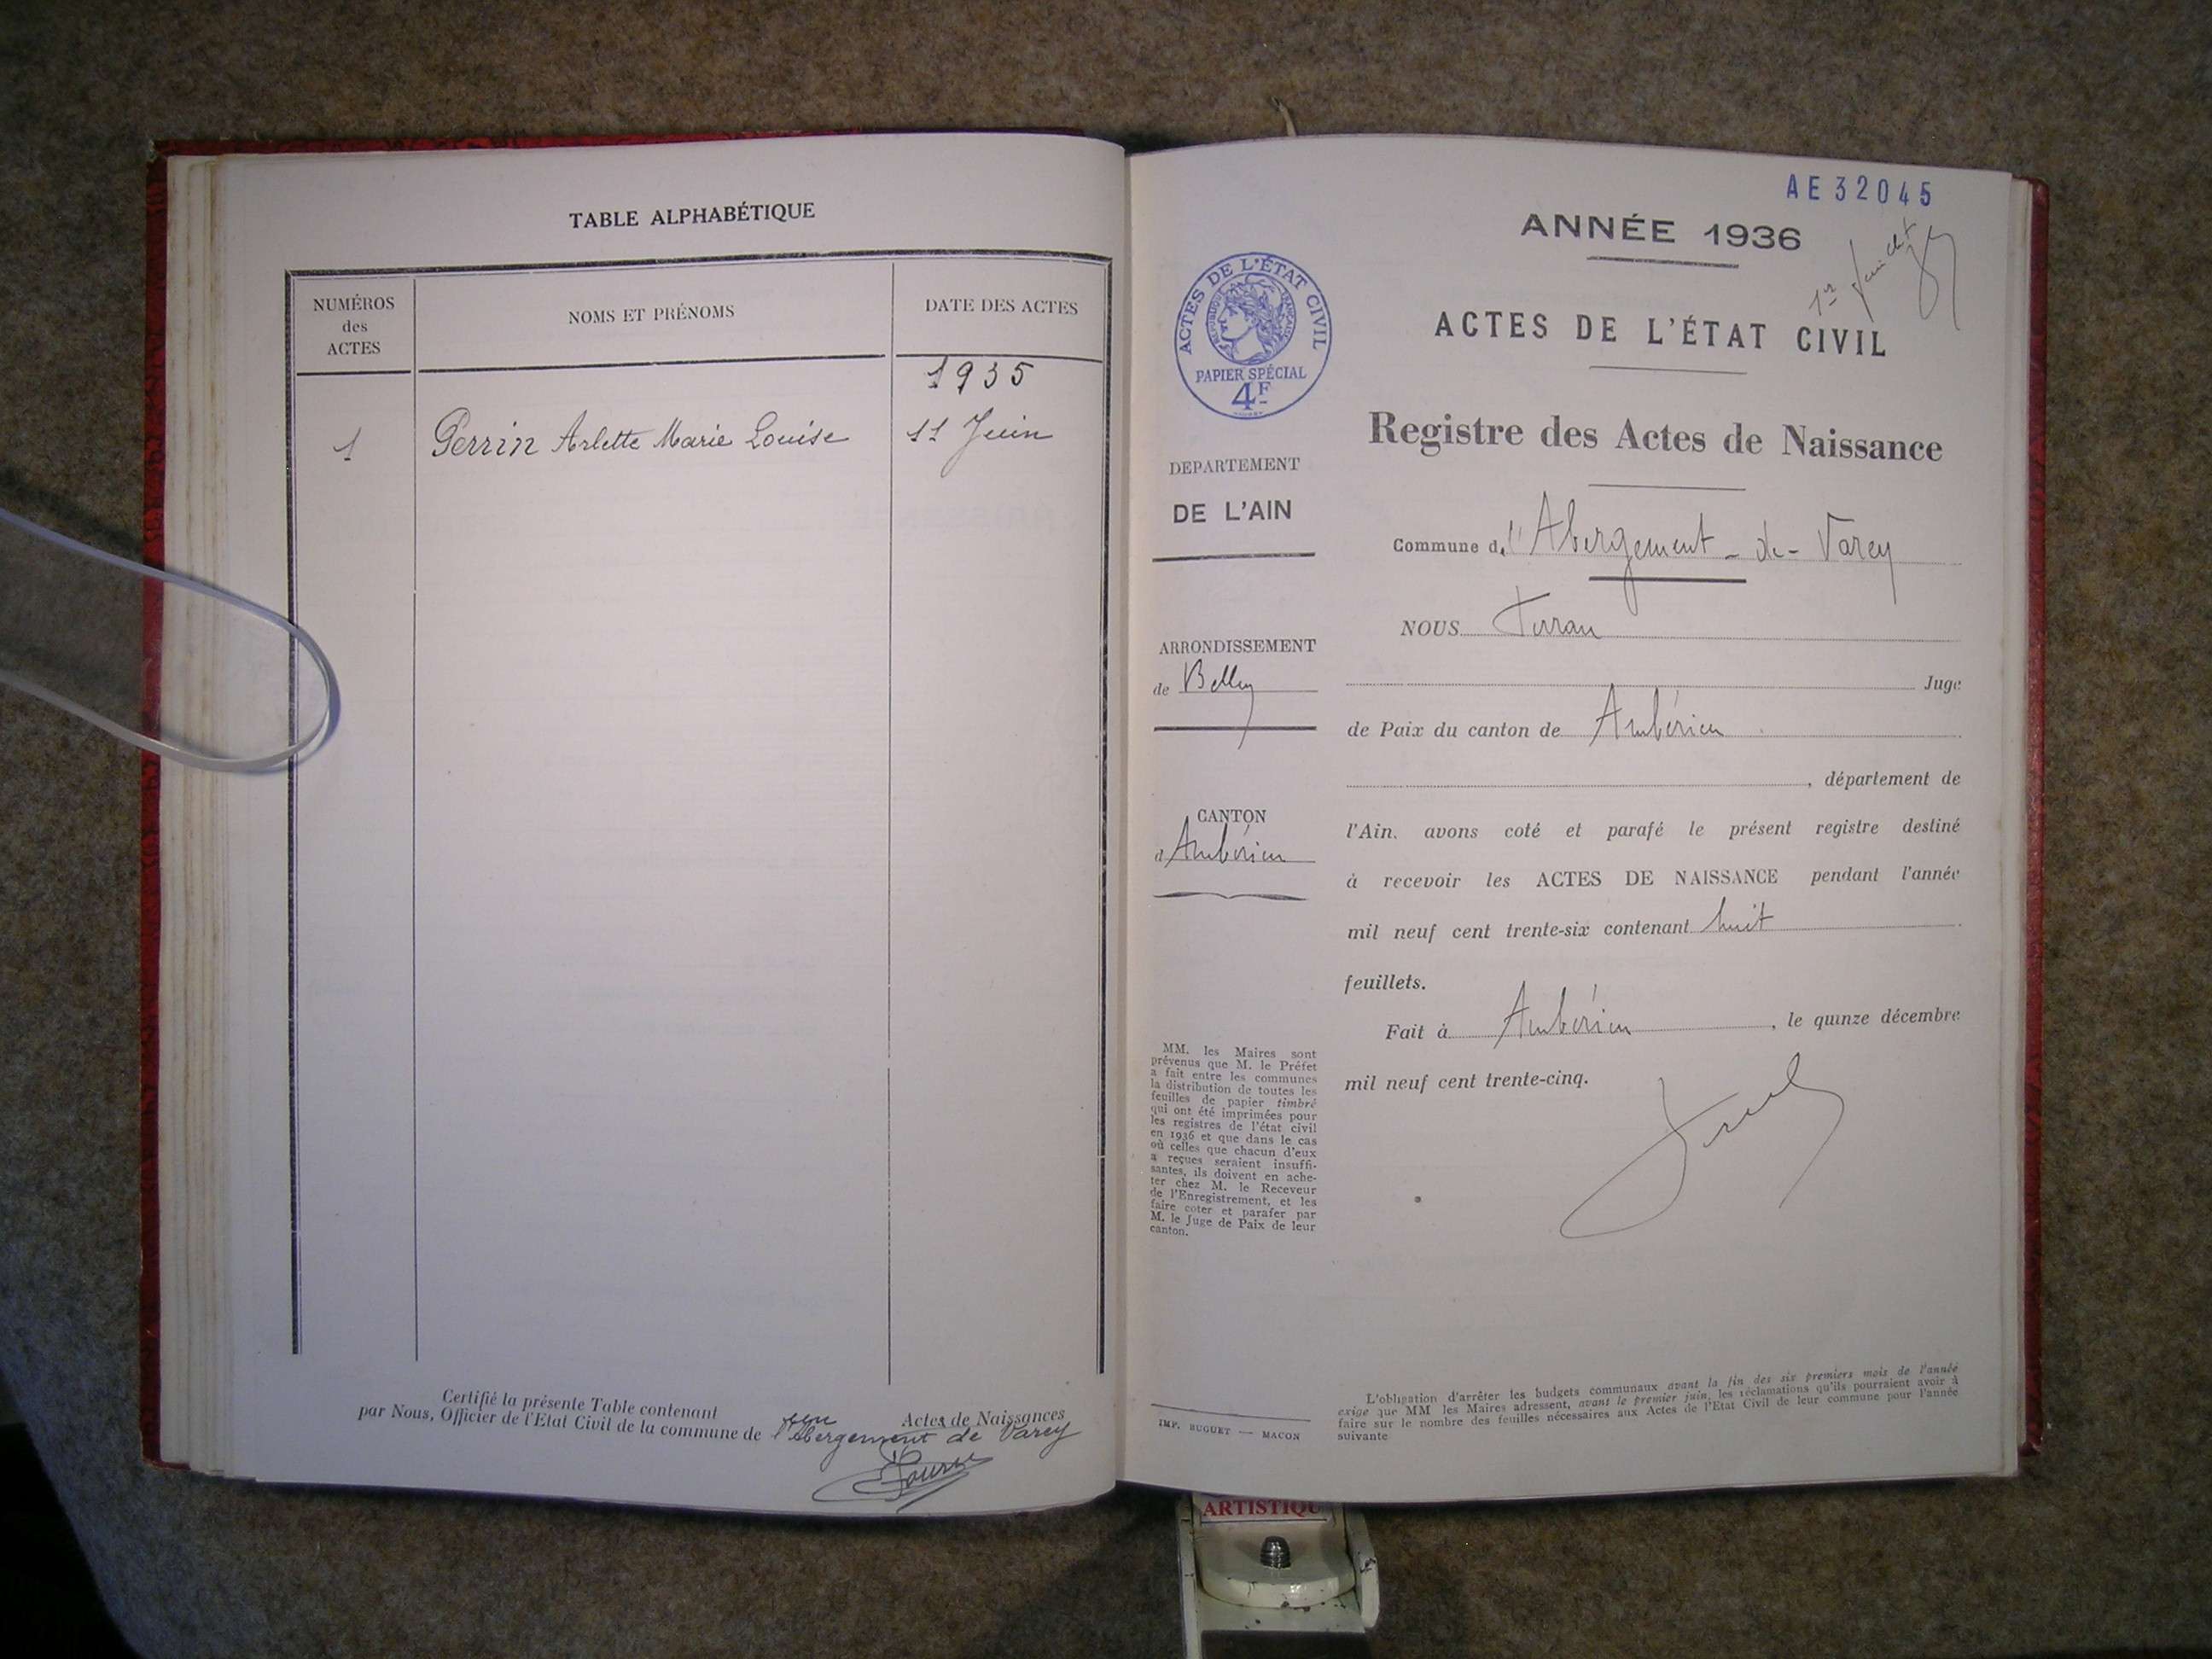 TABLE ALPHABÉTIQUE
NUMÉROS
des
ACTES
NOMS ET PRÉNOMS
DATE DES ACTES
1935
1 Perrin Arlette Marie Louise 11 Juin
Certifié la présente Table contenant une Actes de Naissances
par Nous, Officier de l'Etat Civil de la commune de l'Abergement de Varey
AE32045
ANNÉE 1936
1er feuillet
ACTES DE L'ÉTAT CIVIL
Registre des Actes de Naissance
ACTES DE L'ÉTAT CIVIL
RÉPUBLIQUE FRANÇAISE
PAPIER SPÉCIAL
4F
DEPARTEMENT
DE L'AIN
ARRONDISSEMENT
de Belley
CANTON
d'Ambérieu
MM. les Maires sont
prévenus que M. le Préfet
a fait entre les communes
la distribution de toutes les
feuilles de papier timbré
qui ont été imprimées pour
les registres de l'état civil
en 1936 et que dans le cas
où celles que chacun d'eux
a reçues seraient insuffi-
santes, ils doivent en ache-
ter chez M. le Receveur
de l'Enregistrement, et les
faire coter et parafer par
M. le Juge de Paix de leur
canton.
IMP. BUGUET — MACON
Commune de l'Abergement-de-Varey
NOUS
Juge
de Paix du canton de Ambérieu
, département de
l'Ain, avons coté et parafé le présent registre destiné
à recevoir les ACTES DE NAISSANCE pendant l'année
mil neuf cent trente-six contenant huit
feuillets.
Fait à Ambérieu, le quinze décembre
mil neuf cent trente-cinq.
L'obligation d'arrêter les budgets communaux avant la fin des six premiers mois de l'année
exige que MM les Maires adressent, avant le premier juin, les réclamations qu'ils pourraient avoir à
faire sur le nombre des feuilles nécessaires aux Actes de l'Etat Civil de leur commune pour l'année
suivante
ARTISTIQU